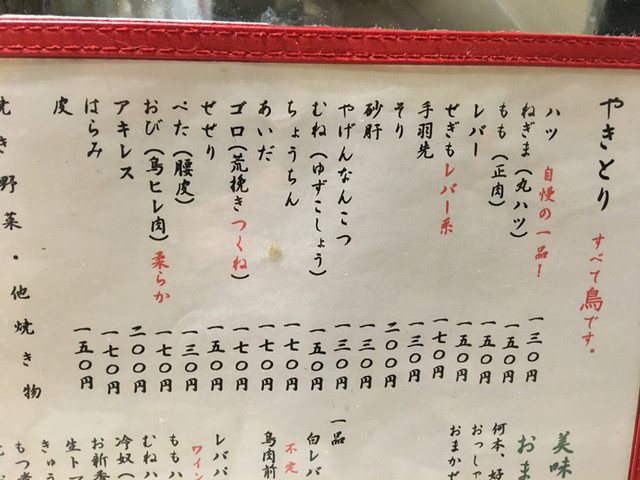 やきとり すべて鳥です。
ハツ 自慢の一品! 一三〇円
ねぎま(丸ハツ) 一五〇円
もも(正肉) 一五〇円
レバー 一五〇円
ぜぎもレバー系 一七〇円
手羽先 一三〇円
そり 二〇〇円
砂肝 一三〇円
やげんなんこつ 一三〇円
むね(ゆずこしょう) 一五〇円
ちょうちん 一七〇円
あいだ 一七〇円
ゴロ(荒挽きつくね) 一七〇円
せせり 一五〇円
ぺた(腰皮) 一三〇円
おび(鳥ヒレ肉)柔らか 一七〇円
アキレス 二〇〇円
はらみ 一七〇円
皮 一五〇円
焼き野菜・他焼き物
美味
おま
何本、好
おっしゃ
おまかせ
一品
白レバ
不定
鳥肉前
レバパ
ワイン
ももハ
むねハ
冷奴(
お新香
生ト
きゅう
もつ煮